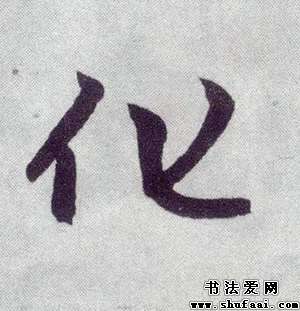 化
书法爱网
www.shufaai.com